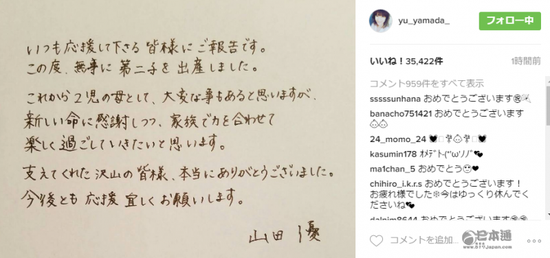 いつも応援して下さる皆様にご報告です。
この度、無事に第二子を出産しました。
これから2児の母として、大変な事もあると思いますが、
新しい命に感謝しつつ、家族で力を合わせて
楽しく過ごしていきたいと思います。
支えてくれた沢山の皆様、本当にありがとうございました。
今後とも応援宜しくお願いします。
山田優
yu_yamada_
フォロー中
いいね！35,422件
1時間前
コメント959件をすべて表示
sssssunhana おめでとうございます
banacho751421 おめでとうございます
24_momo_24
kasumin178 ｵﾒﾃﾞﾄ(*'ω'ノノ"
ma1chan_5 おめでとう
chihiro_i.k.r.s おめでとうございます！
お疲れ様でした※今はゆっくり休んでく
ださいね
dalpim8644 おめでとうございます
コメントを追加...
日本通
www.517japan.com